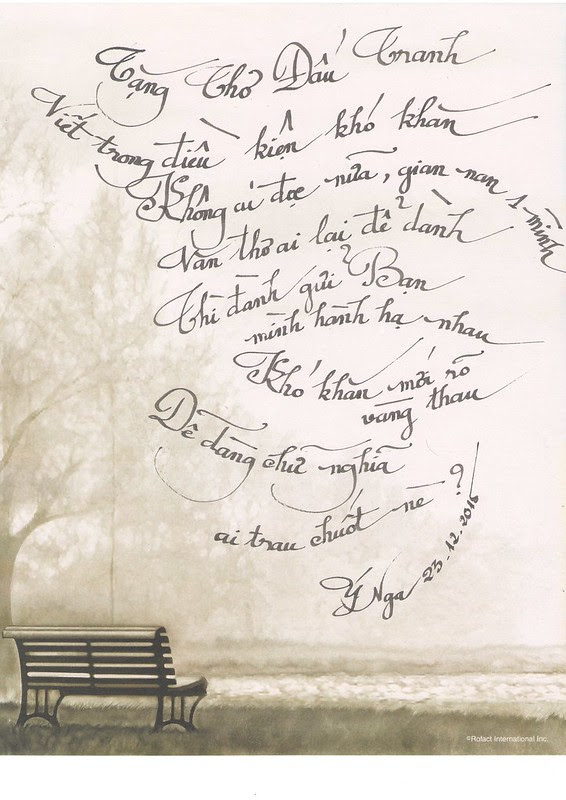 Tặng Thơ Dấu Tranh
Viết trong điều kiện khó khăn
Không ai đọc nữa, gian nan 1 mình
Văn thơ ai lại để dành
Thì đành gửi Bạn
mình hành hạ nhau
Khó khăn mới rõ
vàng thau
Dễ dàng chữ nghĩa
ai trau chuốt nè ?
Ý Nga 23-12-2016
©Rofact International Inc.